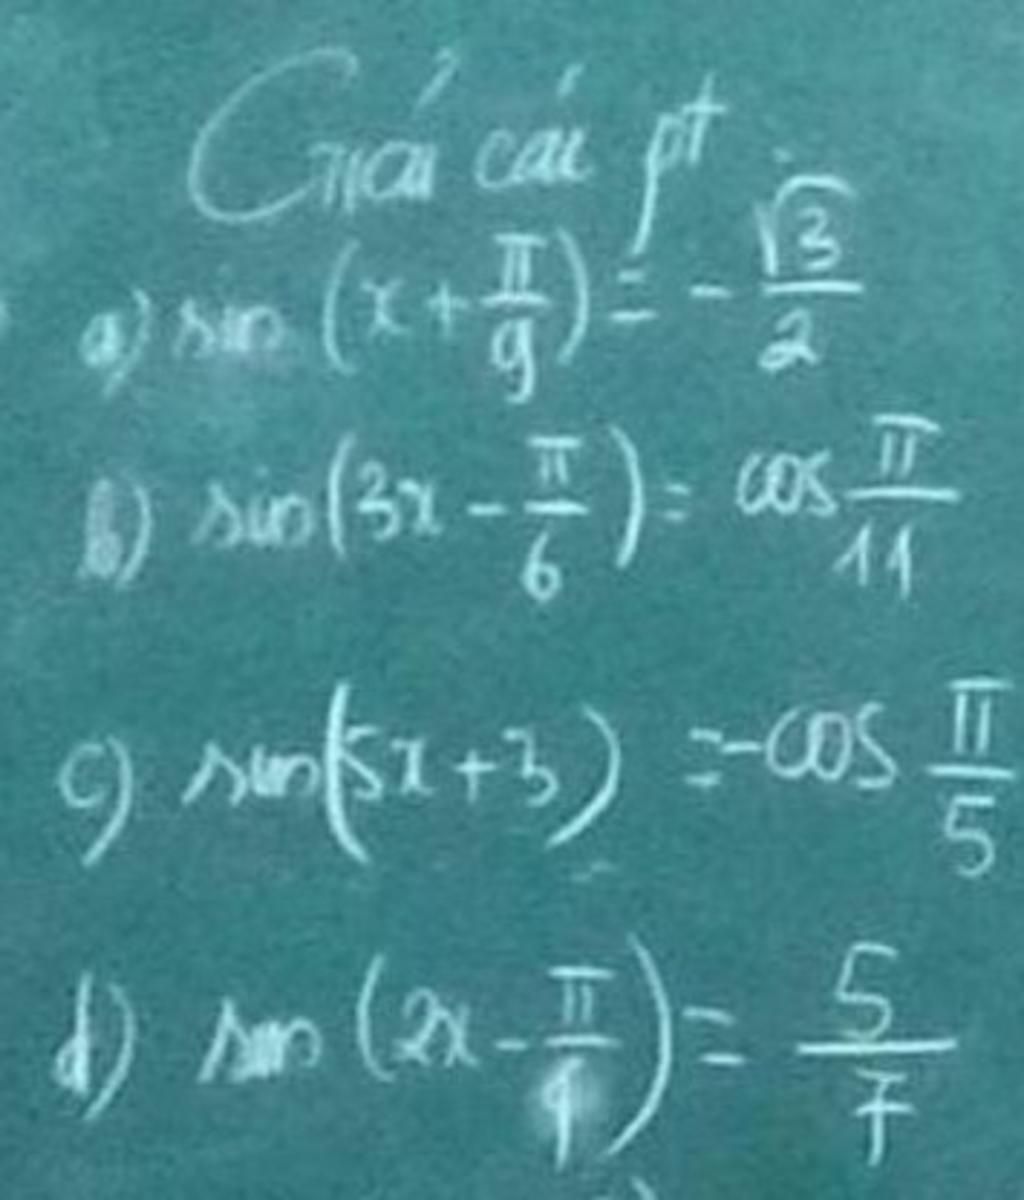 Giải các pt
a) sin (x + π/9) = - √3/2
b) sin (3x - π/6) = cos π/11
c) sin (5x + 3) = -cos π/5
d) sin (2x - π/9) = 5/7